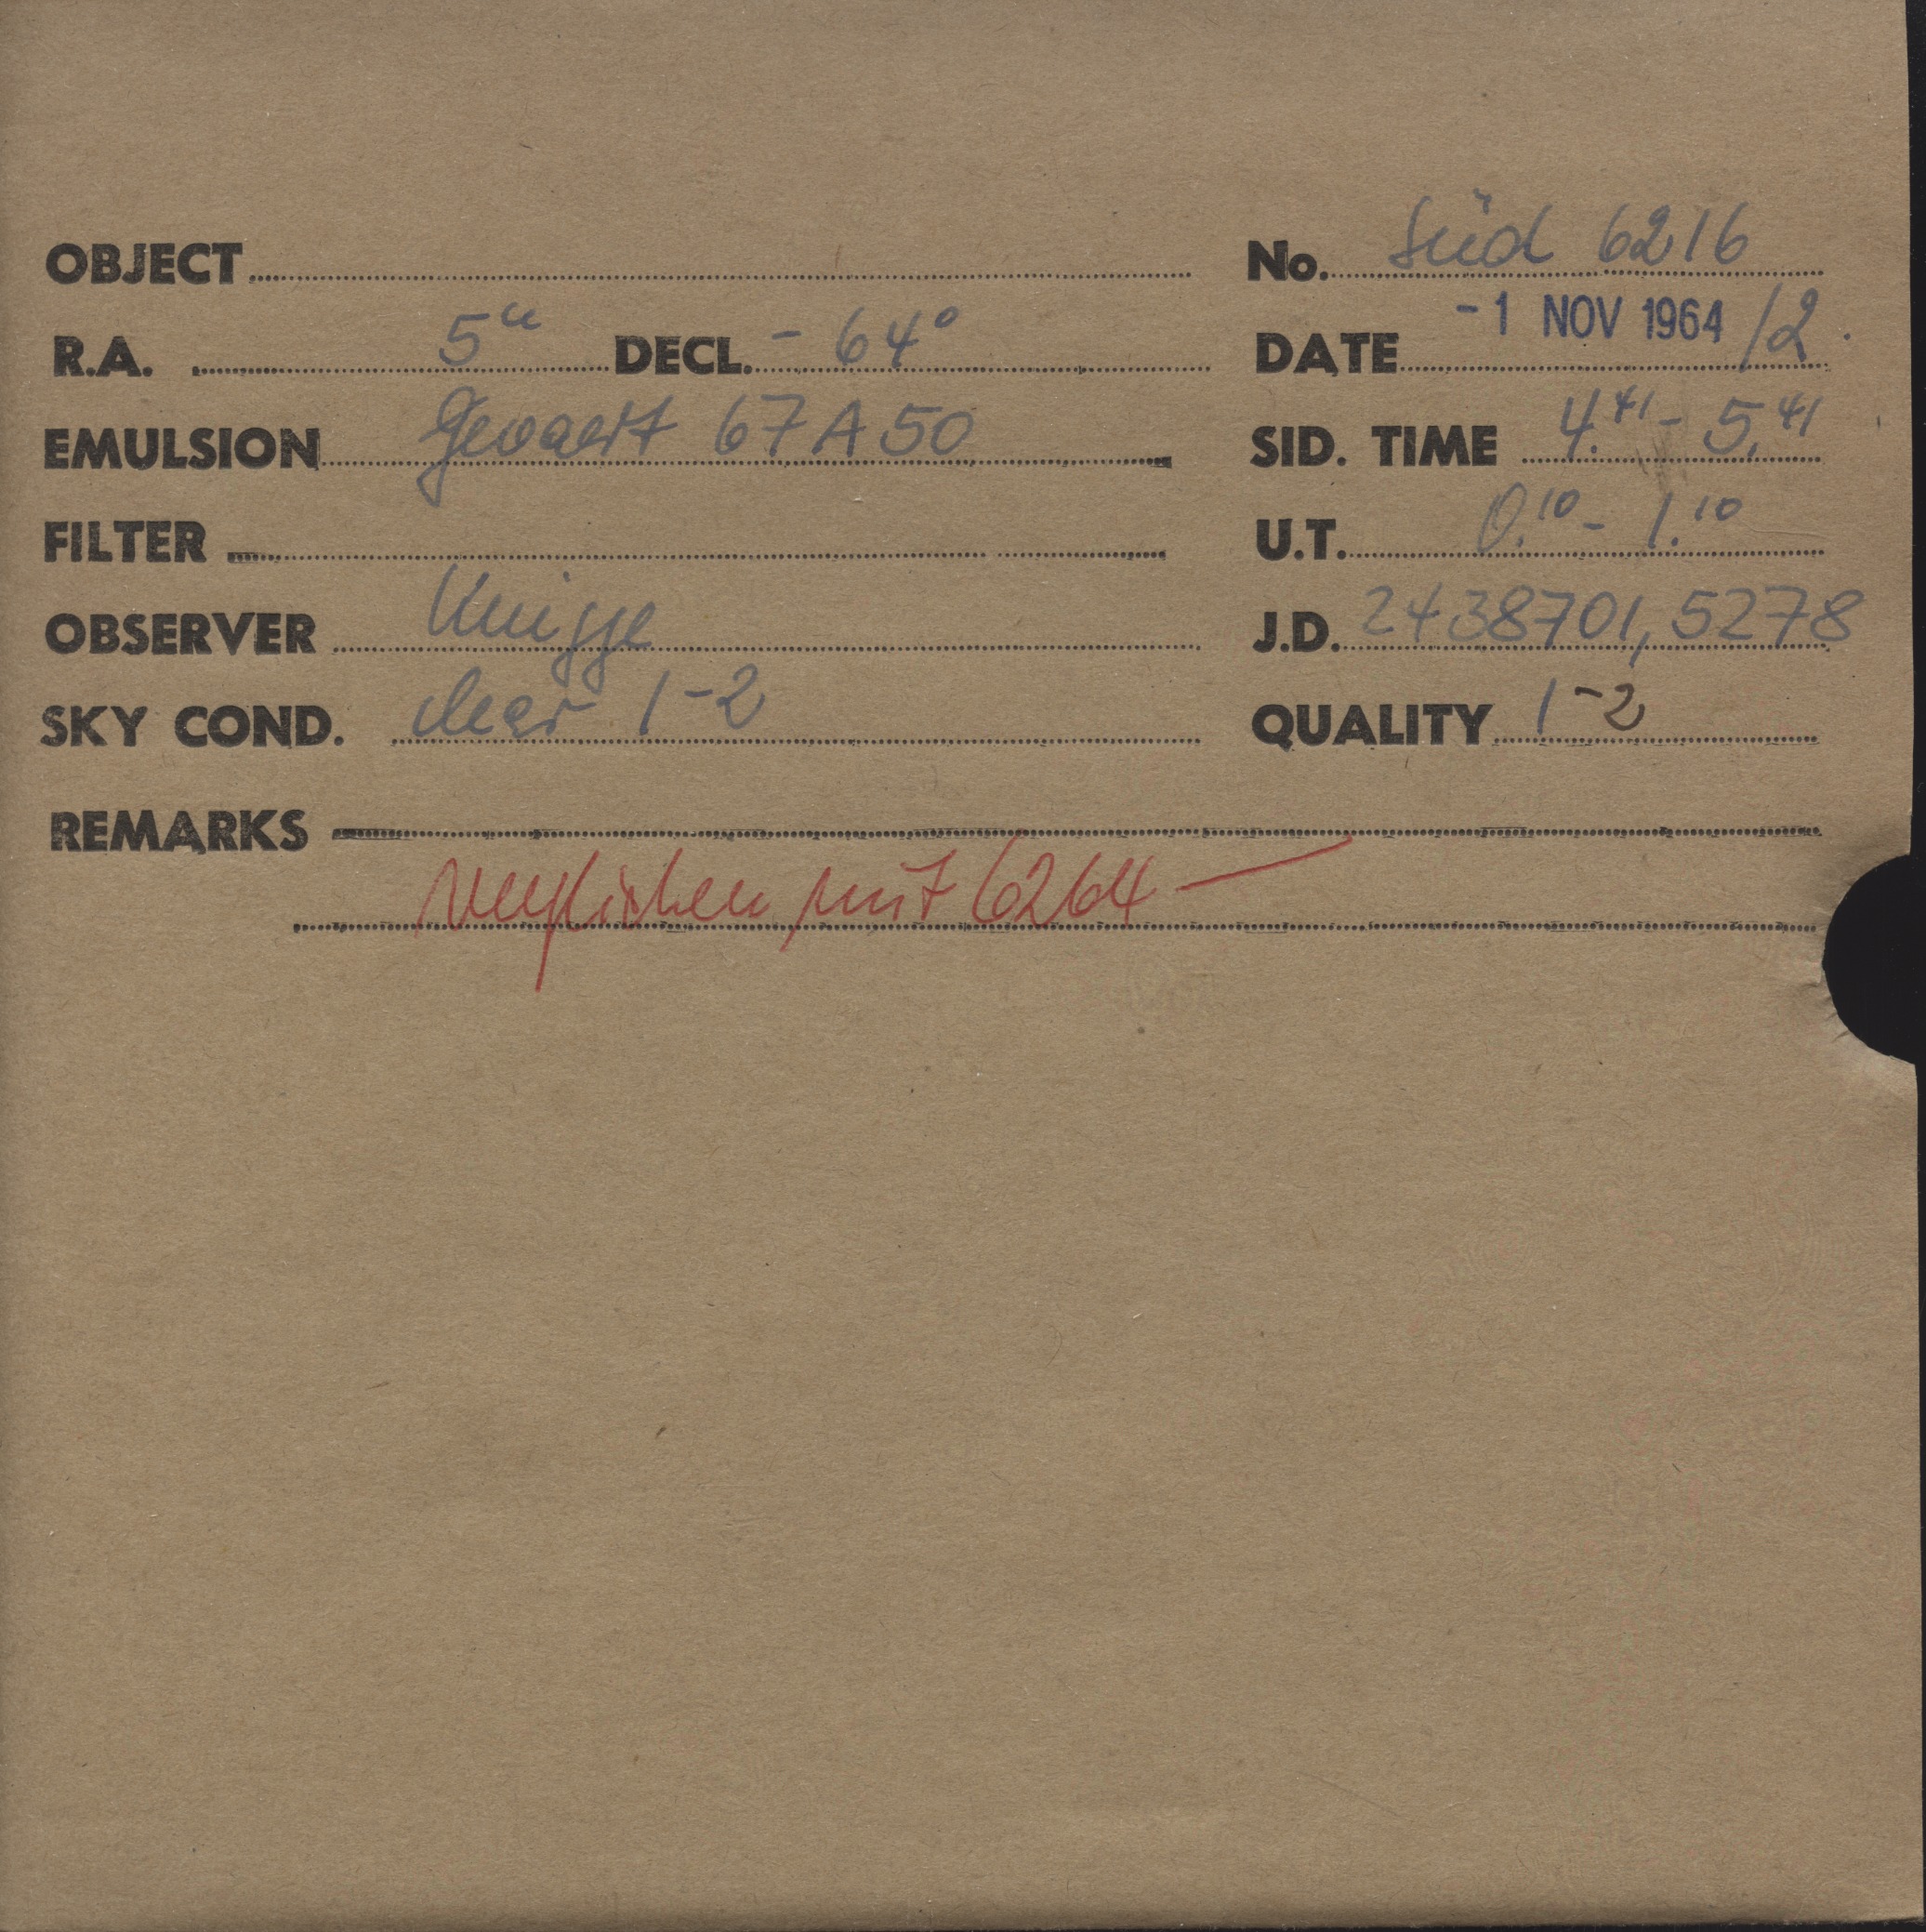 OBJECT No. Süd 6216
R.A. 5ʰ DECL. - 64°
DATE -1 NOV 1964 /2.
EMULSION Gevaert 67 A 50
SID. TIME 4.41 - 5.41
FILTER U.T. 0.10 - 1.10
OBSERVER Knigge
J.D. 2438701,5278
SKY COND. clear 1-2
QUALITY 1-2
REMARKS
verglichen mit 6264 —